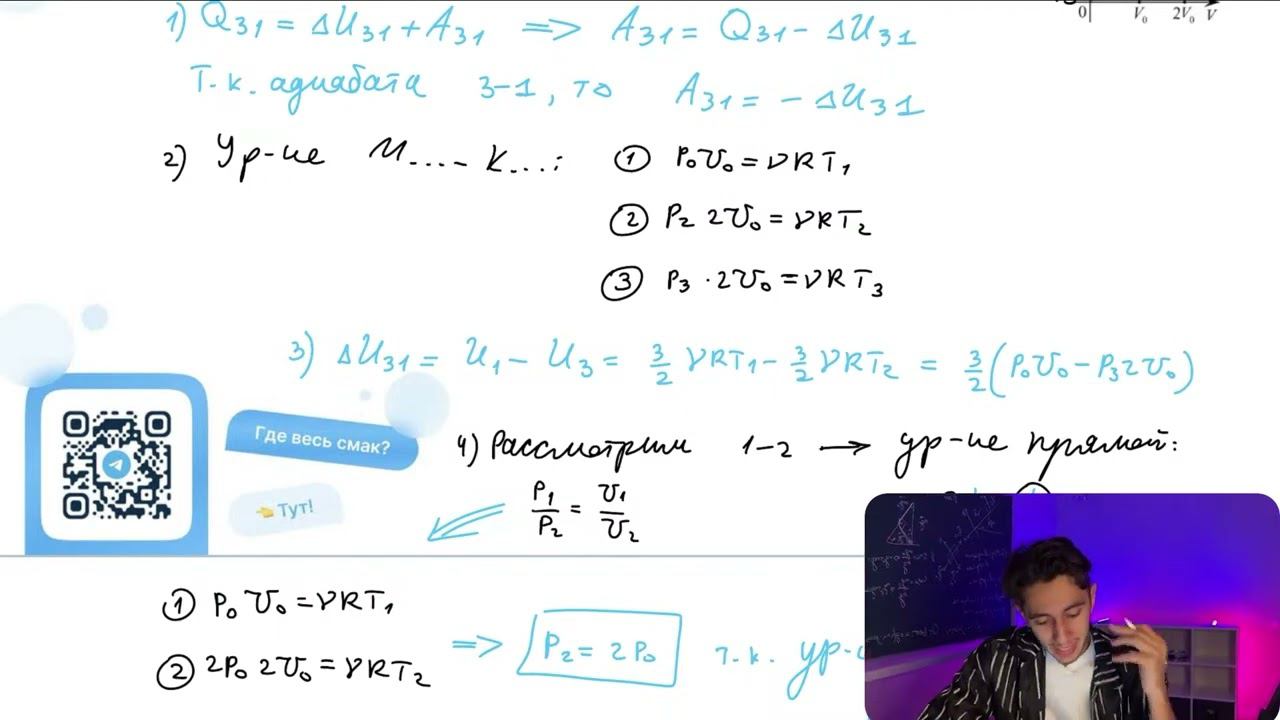 0 V₀ 2V₀ V
1) Q₃₁ = ΔU₃₁ + A₃₁ => A₃₁ = Q₃₁ - ΔU₃₁
Т.к. адиабата 3-1, то A₃₁ = - ΔU₃₁
2) Ур-ие М.... К...: ① P₀V₀ = νRT₁
② P₂ 2V₀ = νRT₂
③ P₃ · 2V₀ = νRT₃
3) ΔU₃₁ = U₁ - U₃ = 3/2 νRT₁ - 3/2 νRT₂ = 3/2 (P₀V₀ - P₃2V₀)
Где весь смак?
👈 Тут!
4) Рассмотрим 1-2 → ур-ие прямой:
P₁/P₂ = V₁/V₂
① P₀ V₀ = νRT₁
② 2P₀ 2V₀ = νRT₂
=> P₂ = 2P₀ т.к.